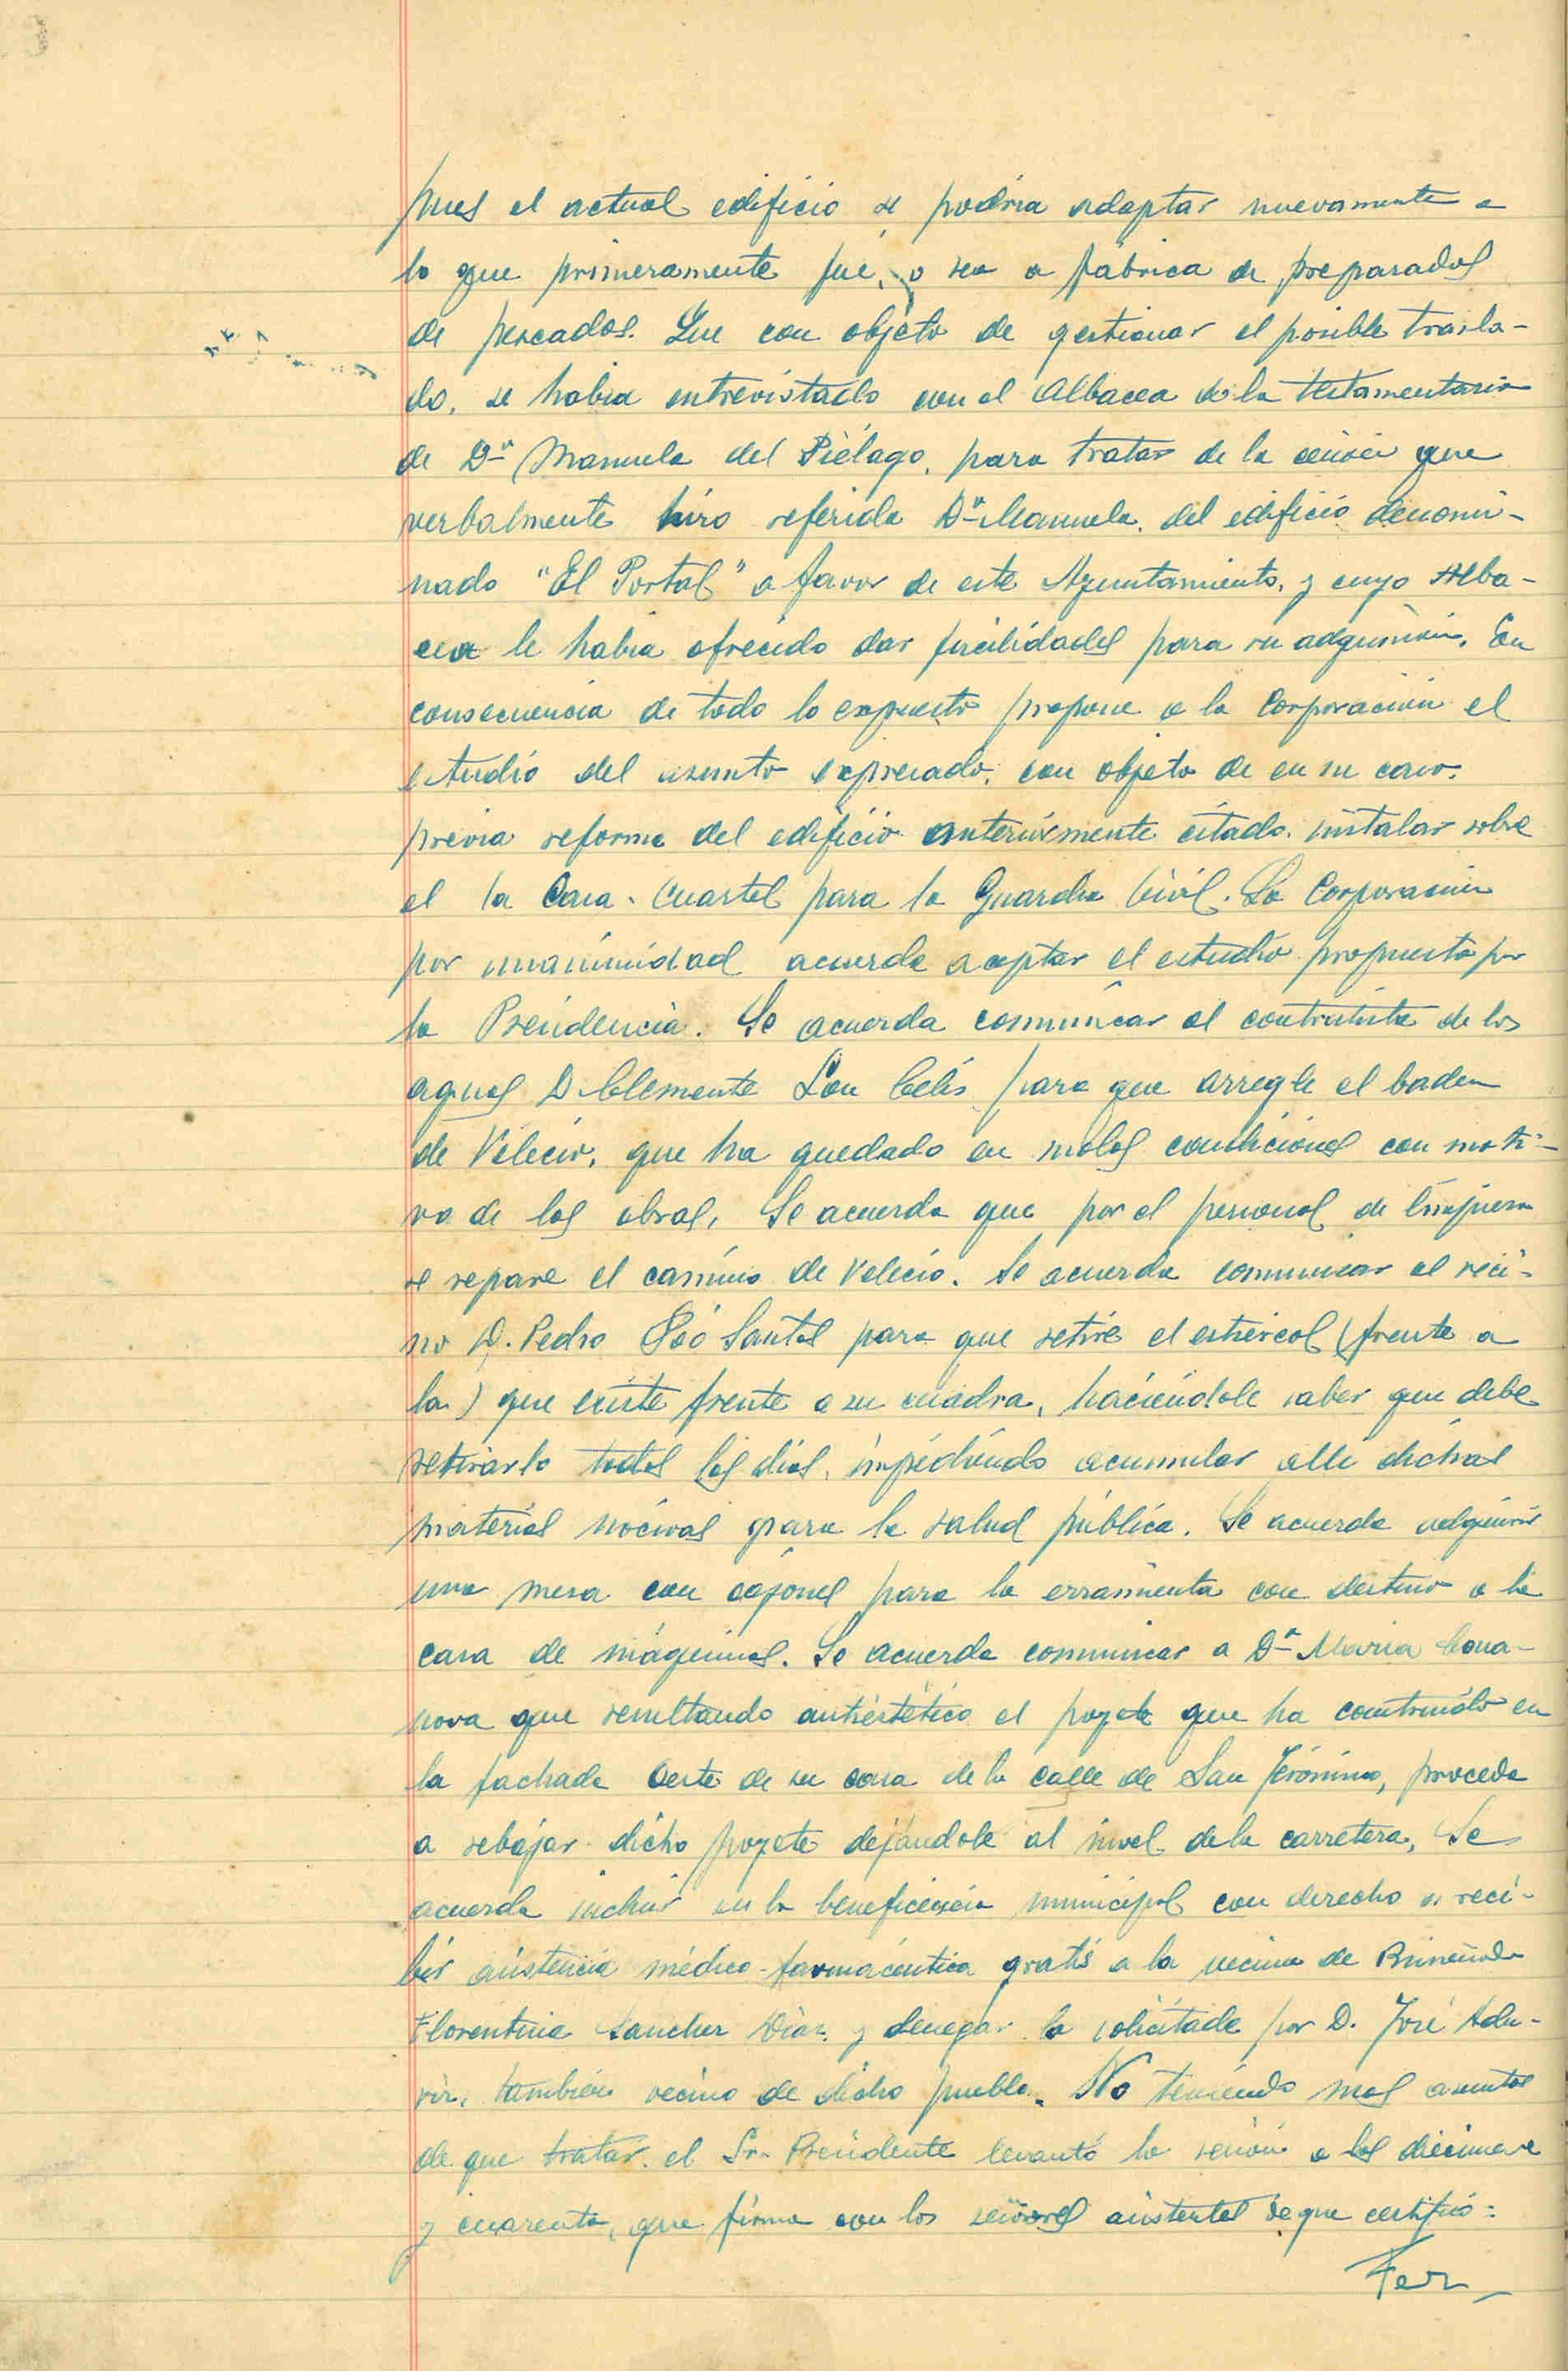 pues el actual edificio se podria adaptar nuevamente a
lo que primeramente fué, o sea a fábrica de preparados
de pescados. Que con objeto de gestionar el posible trasla-
do, se habia entrevistado con el Albacea de la testamentaria
de Dª Manuela del Piélago, para tratar de la cesión que
verbalmente hizo referida Dª Manuela, del edificio denomi-
nado "El Portal" a favor de este Ayuntamiento, y cuyo Alba-
cea le habia ofrecido dar facilidades para su adquisición. En
consecuencia de todo lo expuesto propone a la Corporación el
estudio del asunto expresado, con objeto de en su caso,
previa reforma del edificio anteriormente citado, instalar sobre
el la Casa-Cuartel para la Guardia Civil. La Corporación
por unanimidad acuerda aceptar el estudio propuesto por
la Presidencia. Se acuerda comunicar al contratista de las
aguas D Clemente Lou Celis para que arregle el baden
de Velecio, que ha quedado en malas condiciones con moti-
vo de las obras. Se acuerda que por el personal de limpieza
se repare el camino de Velecio. Se acuerda comunicar al veci-
no D. Pedro Noó Santos para que retire el estiercol (frente a
la) que existe frente a su cuadra, haciéndole saber que debe
retirarlo todos los dias, impidiendo acumular alli dichas
materias nocivas para la salud pública. Se acuerda adquirir
una mesa con cajones para la erramienta con destino a la
casa de máquinas. Se acuerda comunicar a Dª Maria Casa-
nova que resultando antiestético el poyete que ha construido en
la fachada Oeste de su casa de la calle de San Jerónimo, proceda
a rebajar dicho poyete dejándole al nivel de la carretera. Se
acuerda incluir en la beneficencia municipal con derecho a reci-
bir asistencia médico-farmacéutica gratis a la vecina de
Florentina Sanchez Diaz, y denegar la solicitada por D. José Adu-
riz, también vecino de dicho pueblo. No teniendo mas asuntos
de que tratar, el Sr. Presidente levantó la sesión a las diecinueve
y cuarenta, que firma con los señores asistentes de que certifico: